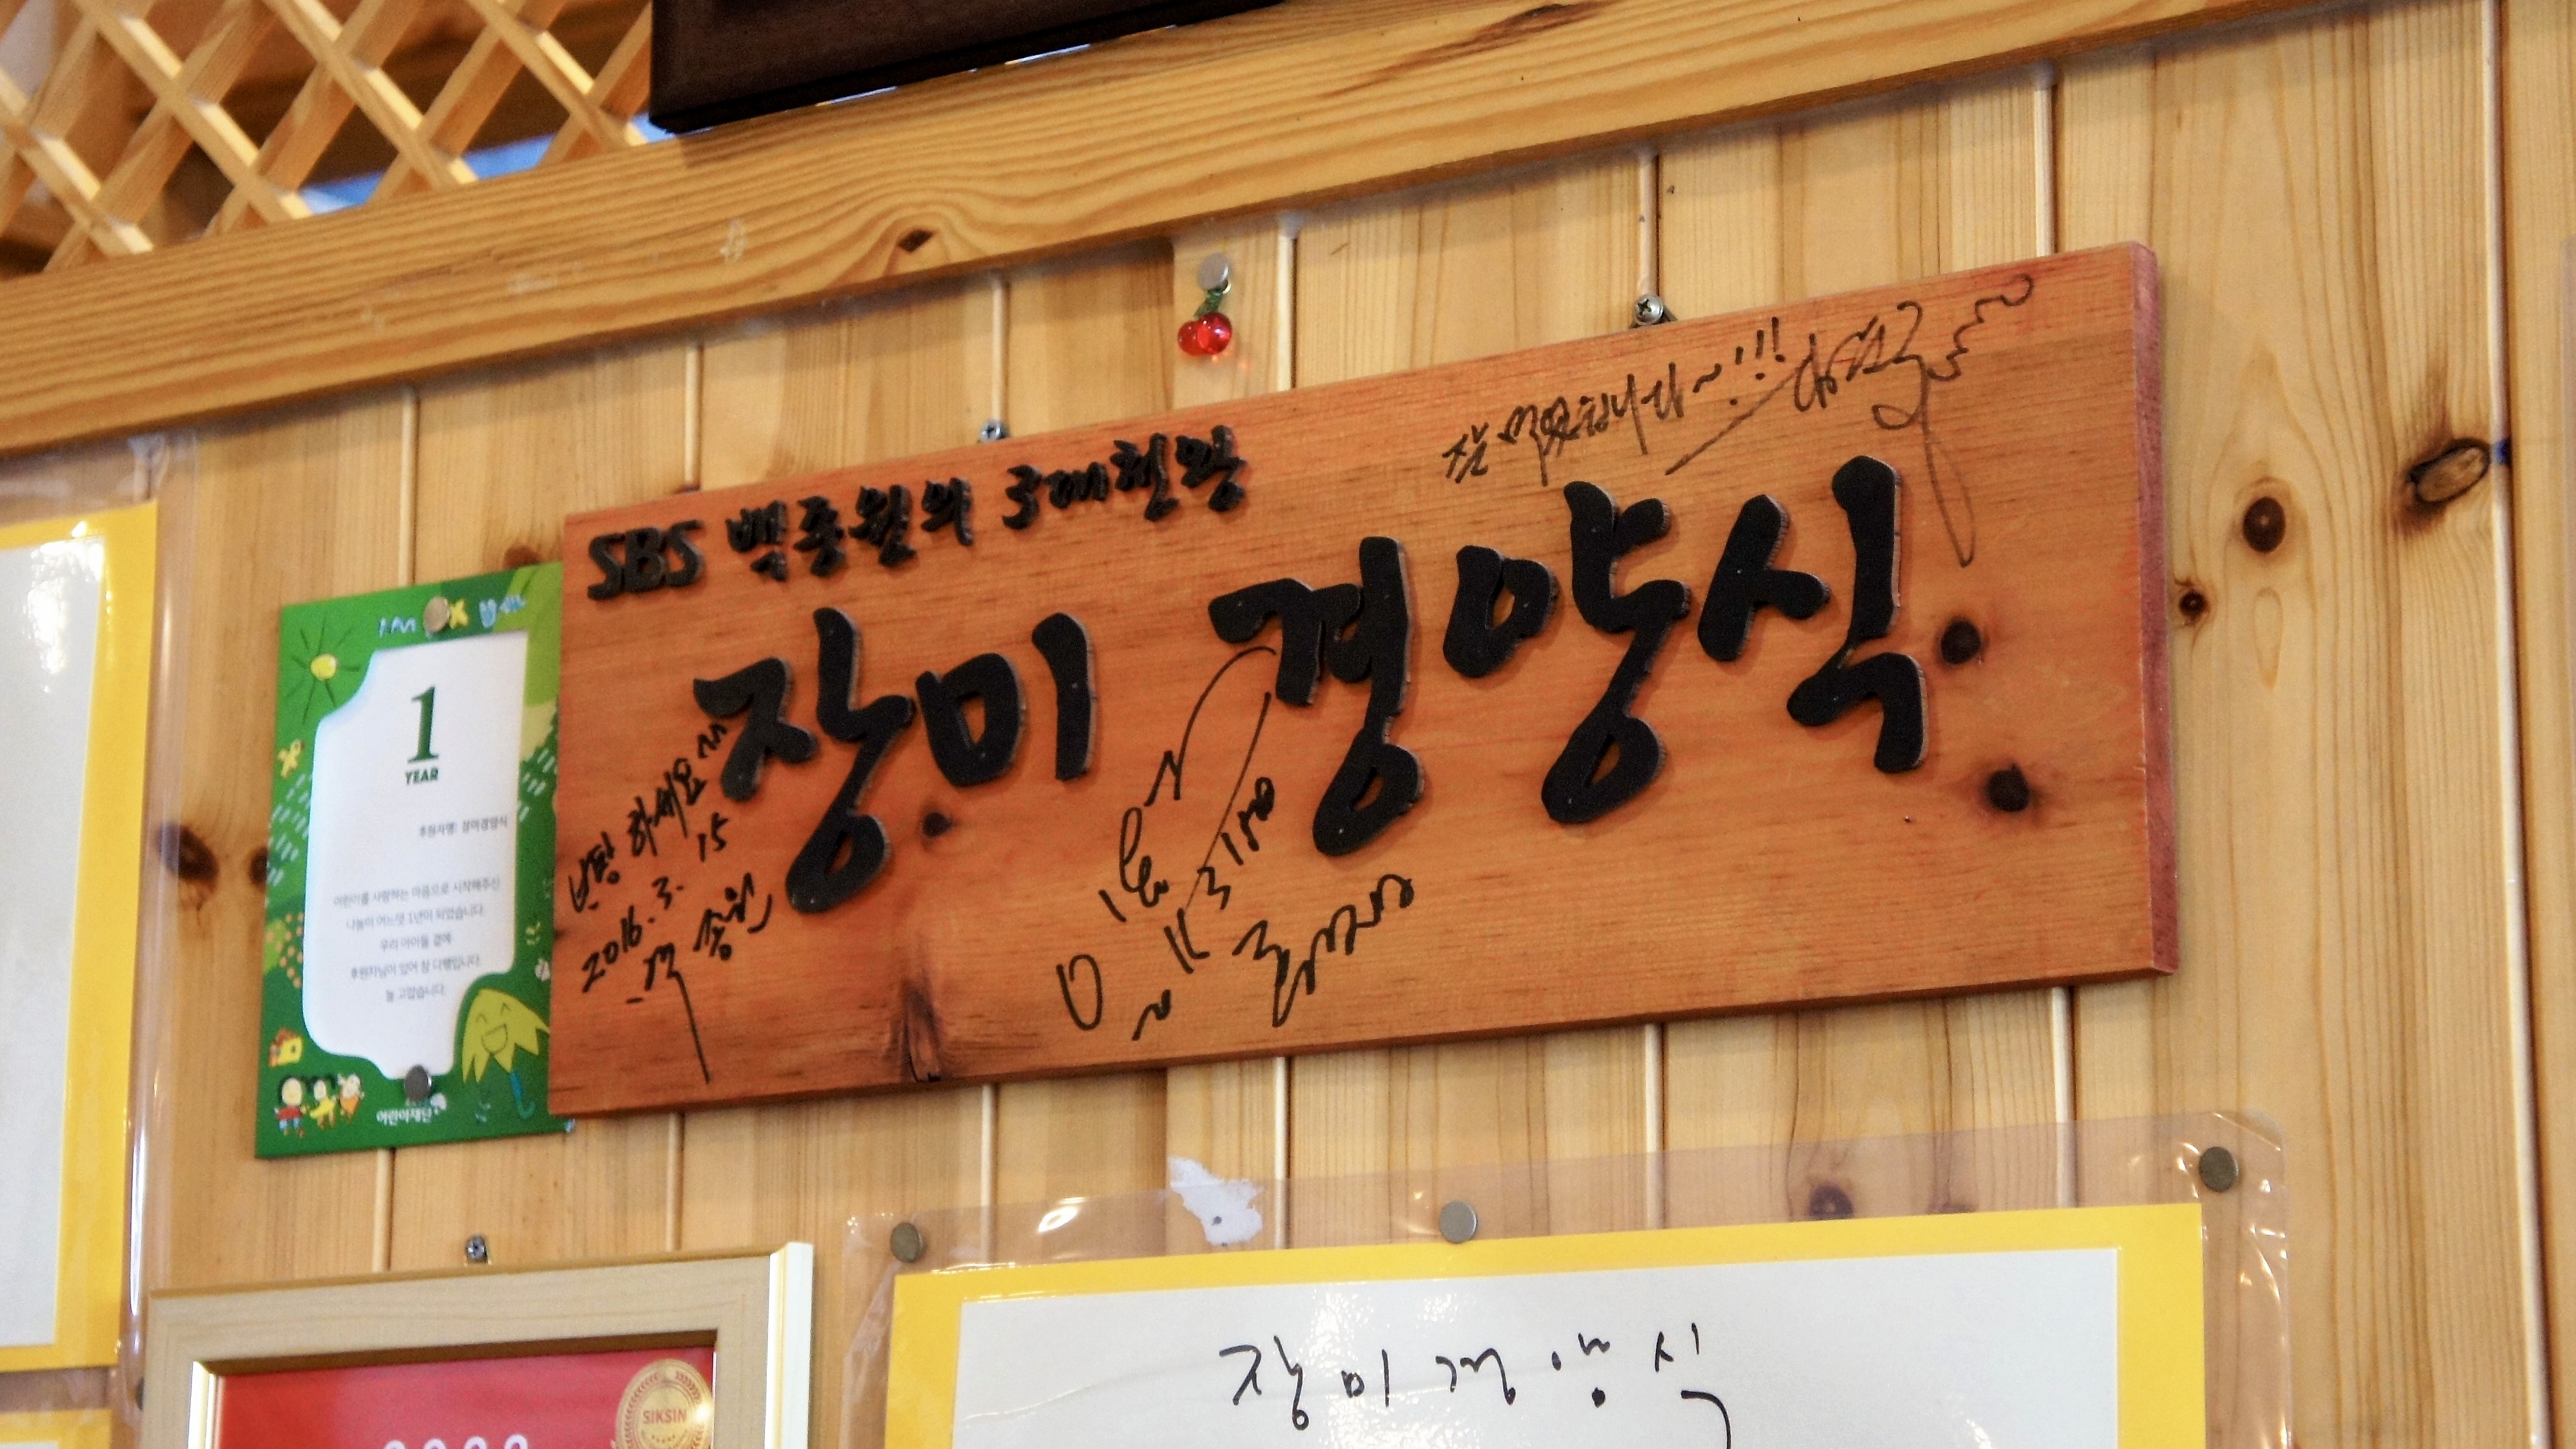 SBS 백종원의 3대천왕
장미 경양식
잘 먹었습니다~!!!
번창 하세요
2016. 3. 15
백종원
1
YEAR
후원자명: 장미경양식
어린이를 사랑하는 마음으로 시작해주신
나눔이 어느덧 1년이 되었습니다.
우리 아이들 곁에
후원자님이 있어 참 다행입니다.
늘 고맙습니다.
어린이재단
SIKSIN
장미경양식